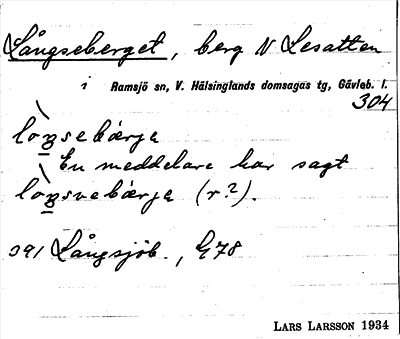 Långseberget, berg N Lesatten
i Ramsjö sn, V. Hälsinglands domsagas tg, Gävleb. l.
304
lo̱ŋsebärja
En meddelare har sagt
lo̱ŋsvebärja (r?).
391 Långsjöb., G78
LARS LARSSON 1934